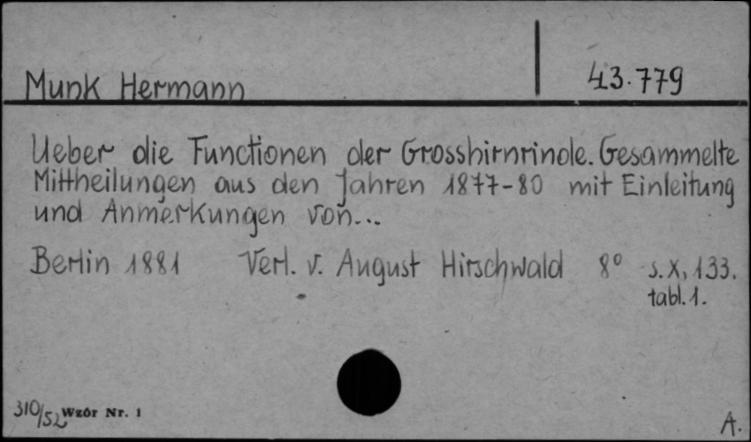 Munk Hermann 43.779
Ueber die Functionen der Grosshirnrinde. Gesammelte
Mittheilungen aus den Jahren 1877-80 mit Einleitung
und Anmerkungen von...
Berlin 1881 Verl. v. August Hirschwald 8° s.X, 133.
tabl. 1.
310/52 Wzór Nr. 1
A.